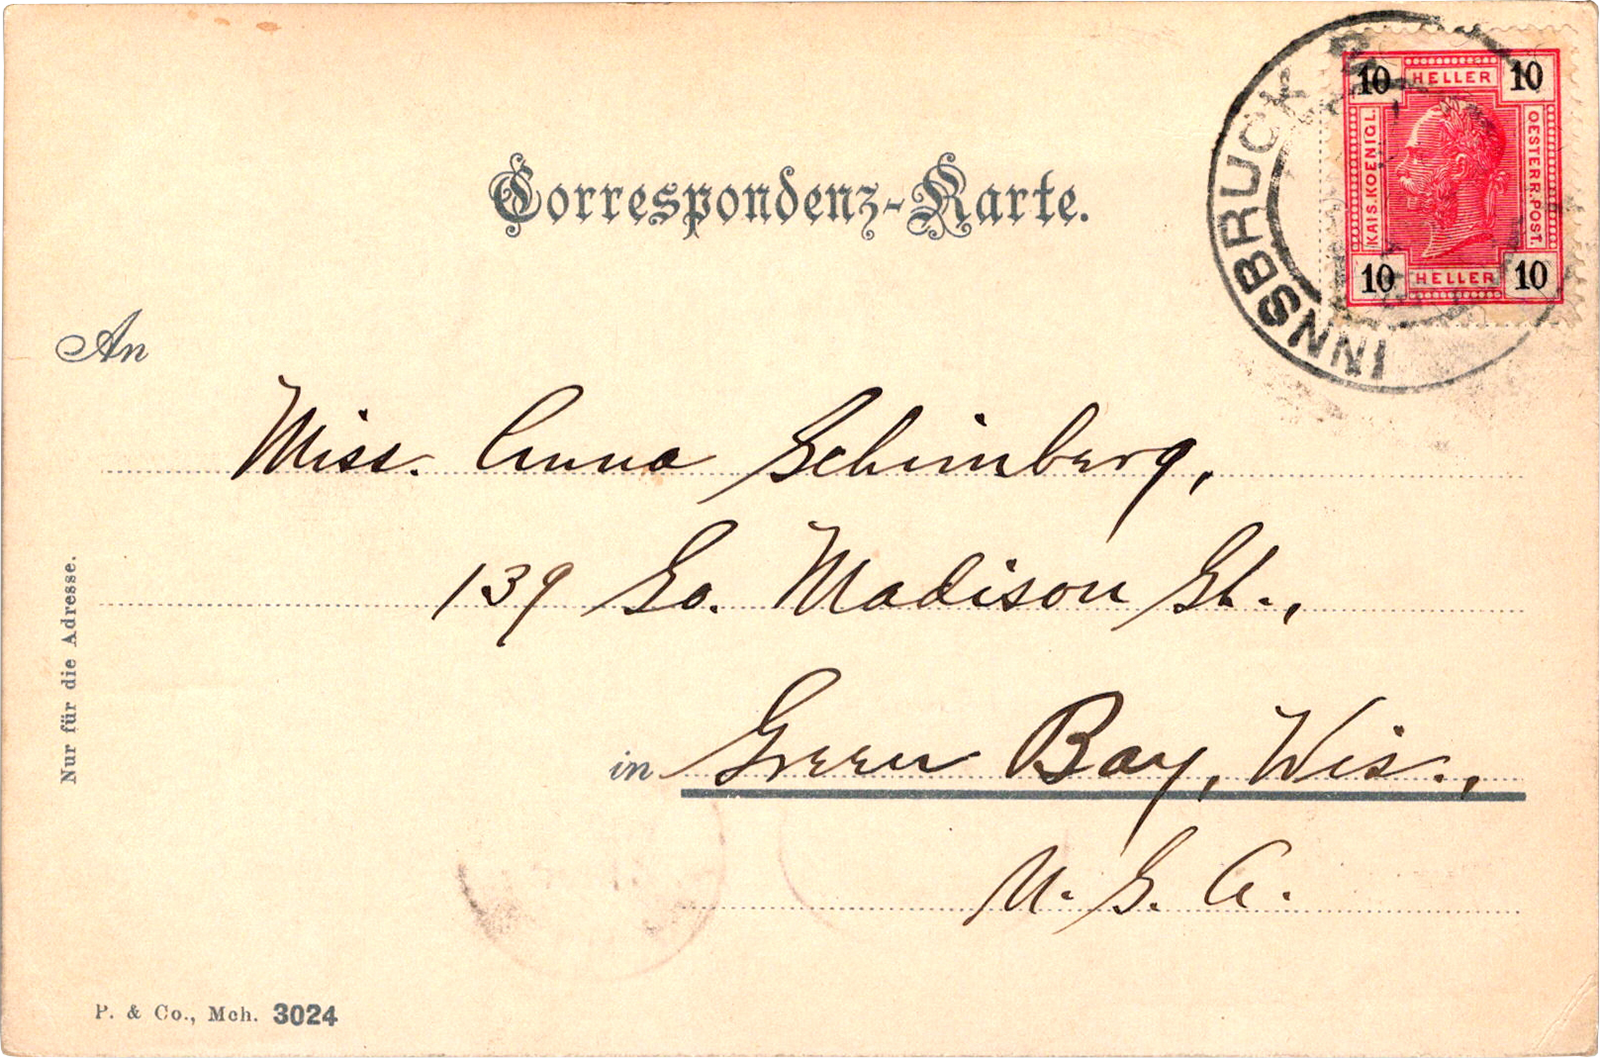 Correspondenz-Karte.
10 HELLER 10
KAIS. KOENIGL.
OESTERR. POST.
10 HELLER 10
INNSBRUCK
An
Miss. Anna Schinberg,
139 So. Madison St.,
in Green Bay, Wis.,
U. S. A.
Nur für die Adresse.
P. & Co., Mch. 3024